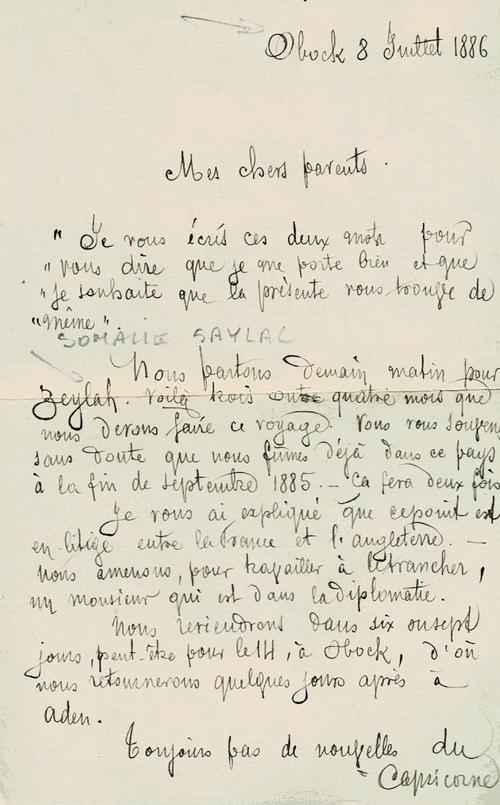 Obock 8 Juillet 1886
Mes chers parents.
" Je vous écris ces deux mots pour
" vous dire que je me porte bien et que
" je souhaite que la présente vous trouve de
" même ".
SOMALIE SAYLAC
Nous partons demain matin pour
Zeylah. Voilà trois quatre mois que
nous devons faire ce voyage. Vous vous souvenez
sans doute que nous fûmes déjà dans ce pays
à la fin de septembre 1885. — Ça fera deux fois
Je vous ai expliqué que ce point est
en litige entre la France et l'angleterre. —
nous amenons, pour travailler à le trancher,
un monsieur qui est dans la diplomatie.
Nous reviendrons dans six ou sept
jours, peut-être pour le 14, à Obock, d'où
nous retournerons quelques jours après à
aden.
Toujours pas de nouvelles du
"Capricorne